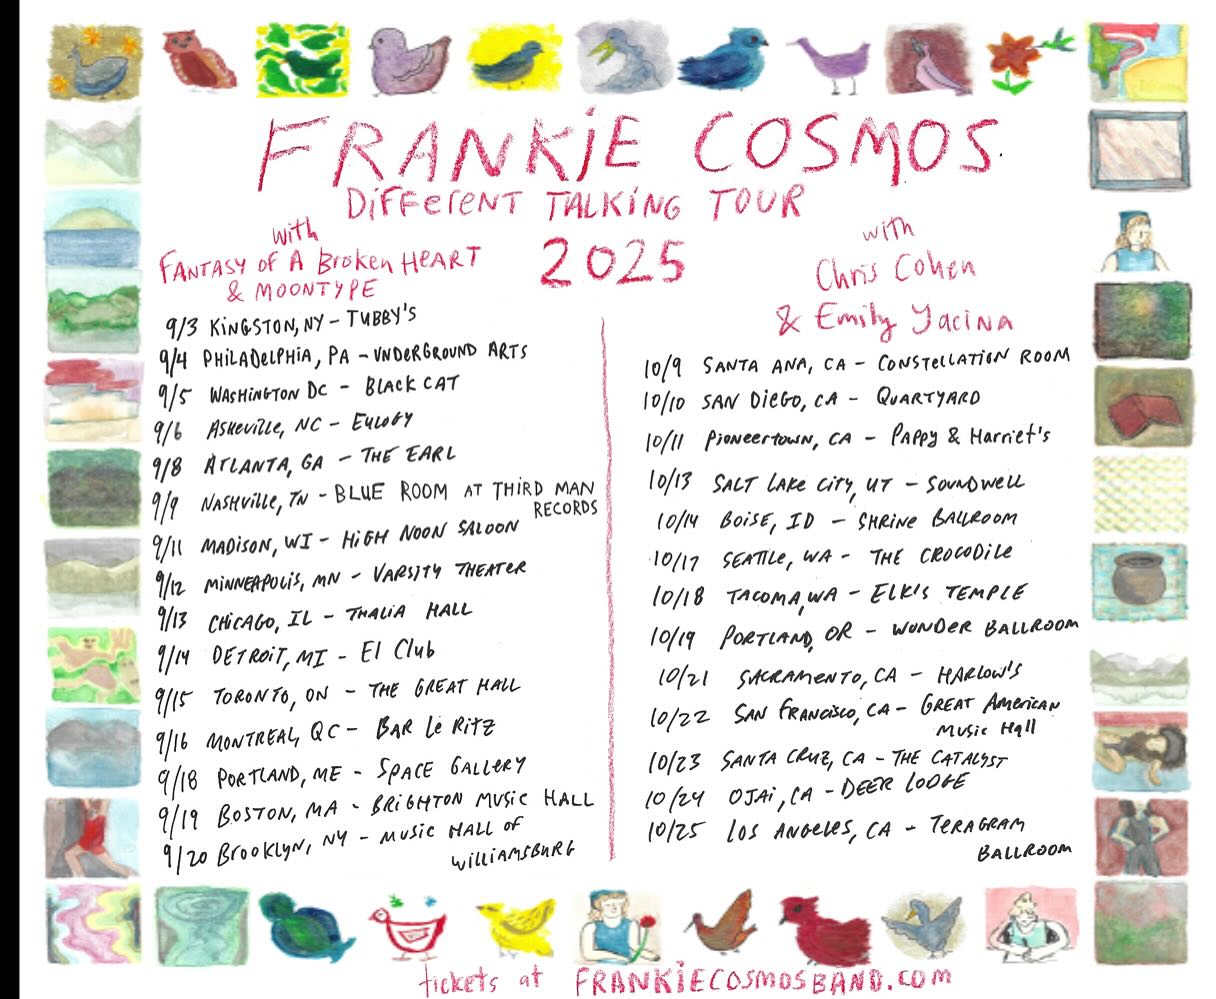 FRANKIE COSMOS
DIFFERENT TALKING TOUR
2025
with
FANTASY OF A BROKEN HEART
& MOONTYPE
9/3 KINGSTON, NY - TUBBY'S
9/4 PHILADELPHIA, PA - UNDERGROUND ARTS
9/5 WASHINGTON DC - BLACK CAT
9/6 ASHEVILLE, NC - EULOGY
9/8 ATLANTA, GA - THE EARL
9/9 NASHVILLE, TN - BLUE ROOM AT THIRD MAN
RECORDS
9/11 MADISON, WI - HIGH NOON SALOON
9/12 MINNEAPOLIS, MN - VARSITY THEATER
9/13 CHICAGO, IL - THALIA HALL
9/14 DETROIT, MI - El Club
9/15 TORONTO, ON - THE GREAT HALL
9/16 MONTREAL, QC - BAR Le RITZ
9/18 PORTLAND, ME - SPACE GALLERY
9/19 BOSTON, MA - BRIGHTON MUSIC HALL
9/20 Brooklyn, NY - MUSIC HALL OF
WILLIAMSBURG
with
Chris Cohen
& Emily Yacina
10/9 SANTA ANA, CA - CONSTELLATION ROOM
10/10 SAN DIEGO, CA - QUARTYARD
10/11 PIONEERTOWN, CA - PAPPY & HARRIET'S
10/13 SALT LAKE CITY, UT - SOUNDWELL
10/14 BOISE, ID - SHRINE BALLROOM
10/17 SEATTLE, WA - THE CROCODILE
10/18 TACOMA, WA - ELK'S TEMPLE
10/19 PORTLAND, OR - WONDER BALLROOM
10/21 SACRAMENTO, CA - HARLOW'S
10/22 SAN FRANCISCO, CA - GREAT AMERICAN
MUSIC HALL
10/23 SANTA CRUZ, CA - THE CATALYST
10/24 OJAI, CA - DEER LODGE
10/25 LOS ANGELES, CA - TERAGRAM
BALLROOM
tickets at FRANKIECOSMOSBAND.COM